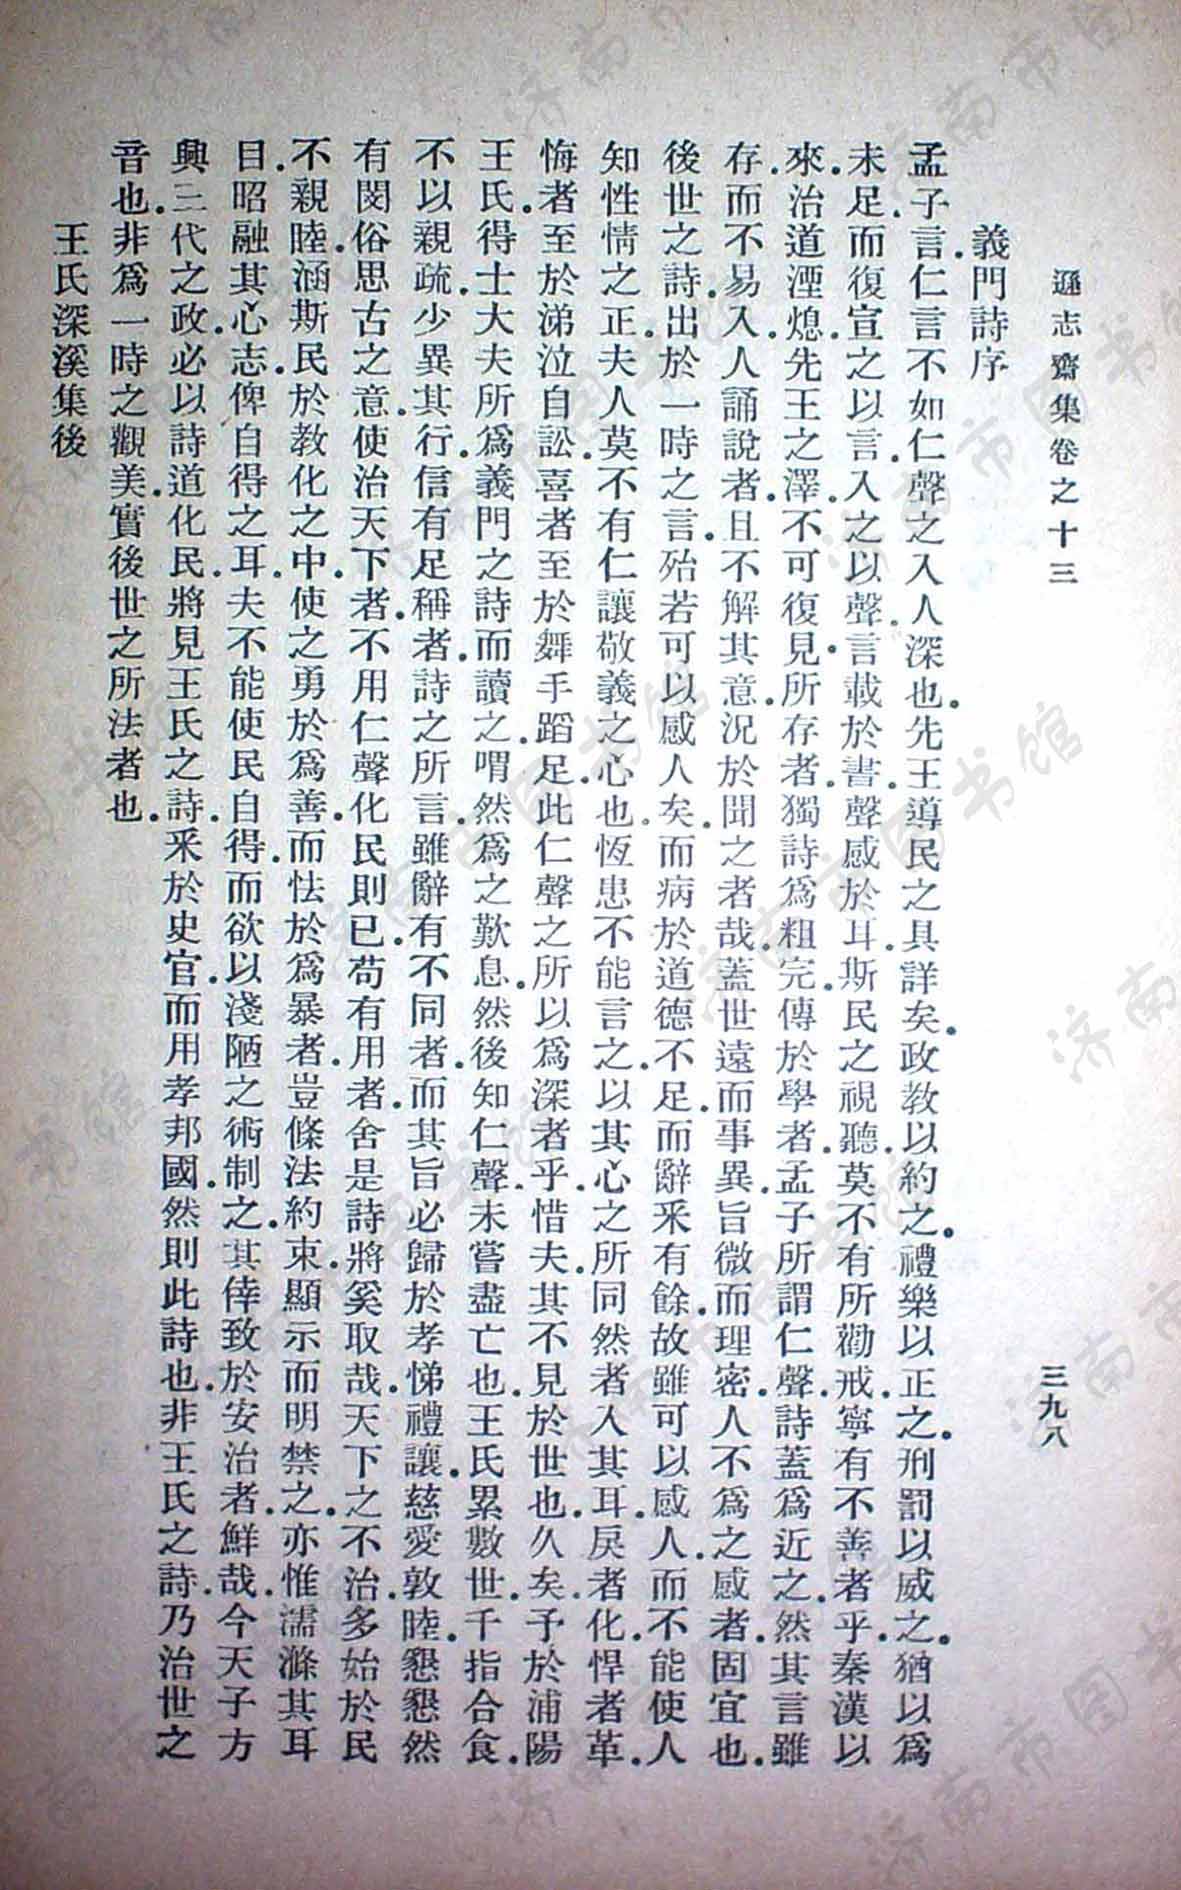 遜志齋集卷之十三
三九八
義門詩序
孟子言仁言不如仁聲之入人深也。先王導民之具詳矣。政教以約之。禮樂以正之。刑罰以威之。猶以爲
未足。而復宣之以言。入之以聲。言載於書。聲感於耳。斯民之視聽。莫不有所勸戒。寧有不善者乎。秦漢以
來。治道湮熄。先王之澤。不可復見。所存者。獨詩爲粗完。傳於學者。孟子所謂仁聲。詩蓋爲近之。然其言雖
存。而不易入。人誦說者。且不解其意。況於聞之者哉。蓋世遠而事異。旨微而理密。人不爲之感者。固宜也。
後世之詩。出於一時之言。殆若可以感人矣。而病於道德不足。而辭釆有餘。故雖可以感人。而不能使人
知性情之正。夫人莫不有仁讓敬義之心也。恆患不能言之。以其心之所同然者。入其耳。戾者化。悍者革。
悔者至於涕泣自訟。喜者至於舞手蹈足。此仁聲之所以爲深者乎。惜夫。其不見於世也。久矣。予於浦陽
王氏。得士大夫所爲義門之詩。而讀之。喟然爲之歎息。然後知仁聲未嘗盡亡也。王氏累數世。千指合食。
不以親疏。少異其行。信有足稱者。詩之所言。雖辭有不同者。而其旨必歸於孝悌禮讓。慈愛敦睦。懇懇然
有閔俗思古之意。使治天下者。不用仁聲化民則已。苟有用者。舍是詩將奚取哉。天下之不治。多始於民
不親睦。涵斯民於教化之中。使之勇於爲善。而怯於爲暴者。豈條法約束。顯示而明禁之。亦惟濡滌其耳
目。昭融其心志。俾自得之耳。夫不能使民自得。而欲以淺陋之術制之。其倖致於安治者。鮮哉。今天子方
興三代之政。必以詩道化民。將見王氏之詩。釆於史官。而用孝邦國。然則此詩也。非王氏之詩。乃治世之
音也。非爲一時之觀美。實後世之所法者也。
王氏深溪集後
济南市图书馆